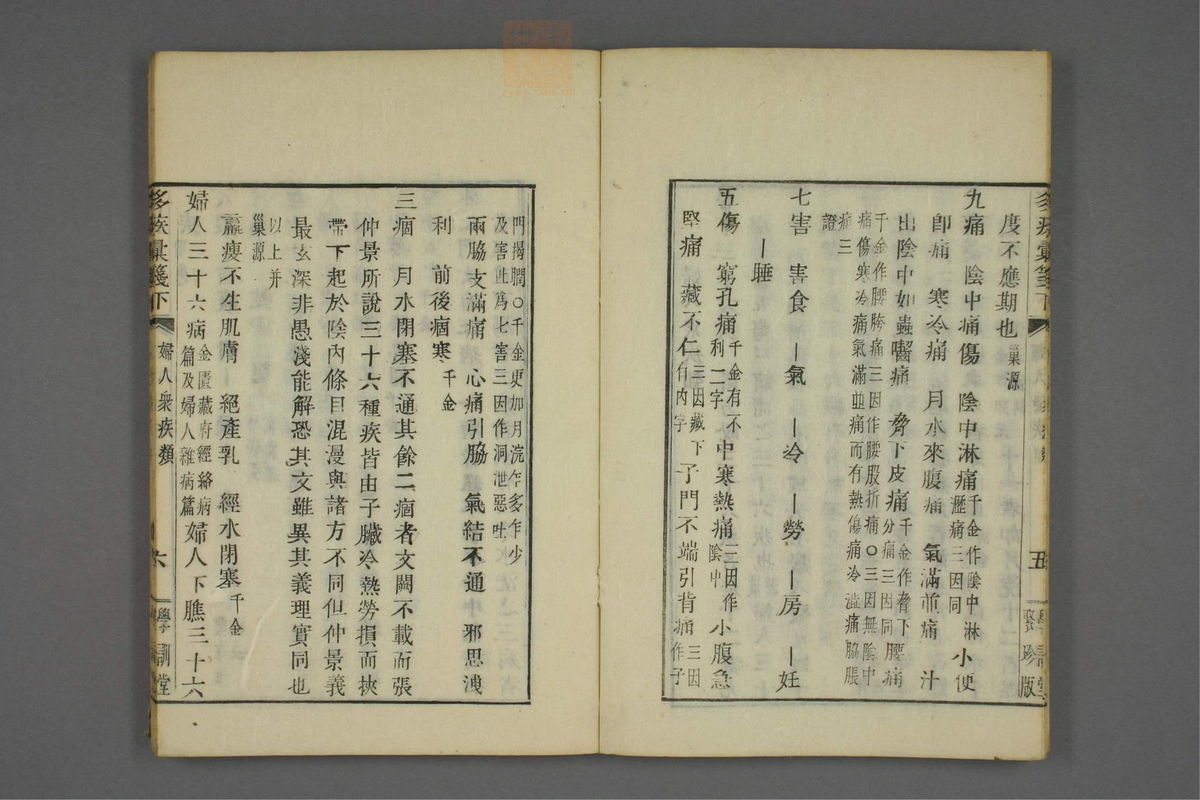 度不應期也巢源
九痛 陰中痛傷 陰中淋痛千金作陰中淋瀝痛三因同小便
即痛 寒冷痛 月水來腹痛 氣滿並痛 汁
出陰中如蟲嚙痛 脅下皮痛千金作脅下分痛三因同腰痛
千金作腰胯痛三因作腰股折痛○三因無陰中
痛傷寒冷痛氣滿並痛而有熱傷痛冷澁痛脇脹
痛三
證
七害 害食 ー氣 ー冷 ー勞 ー房 ー妊
ー睡
五傷 窮孔痛千金有不利二字中寒熱痛三因作陰中小腹急
堅痛 藏不仁三因藏下有內字子門不端引背痛三因痛作子
聚珍版
門揭膶○千金更加月浣乍多乍少
及害吐爲七害三因作洞泄惡吐
兩脇支滿痛 心痛引脇 氣結不通 邪思洩
利 前後痼寒千金
三痼 月水閉塞不通其餘二痼者文闕不載而張
仲景所說三十六種疾皆由子臟冷熱勞損而挾
帶下起於陰內條目混漫與諸方不同但仲景義
最玄深非愚淺能解恐其文雖異其義理實同也
以上并
巢源
羸瘦不生肌膚 絕產乳 經水閉塞千金
婦人三十六病金匱藏府經絡病篇及婦人雜病篇婦人下膲三十六
彙箋下 婦人衆疾類 六 學訓堂